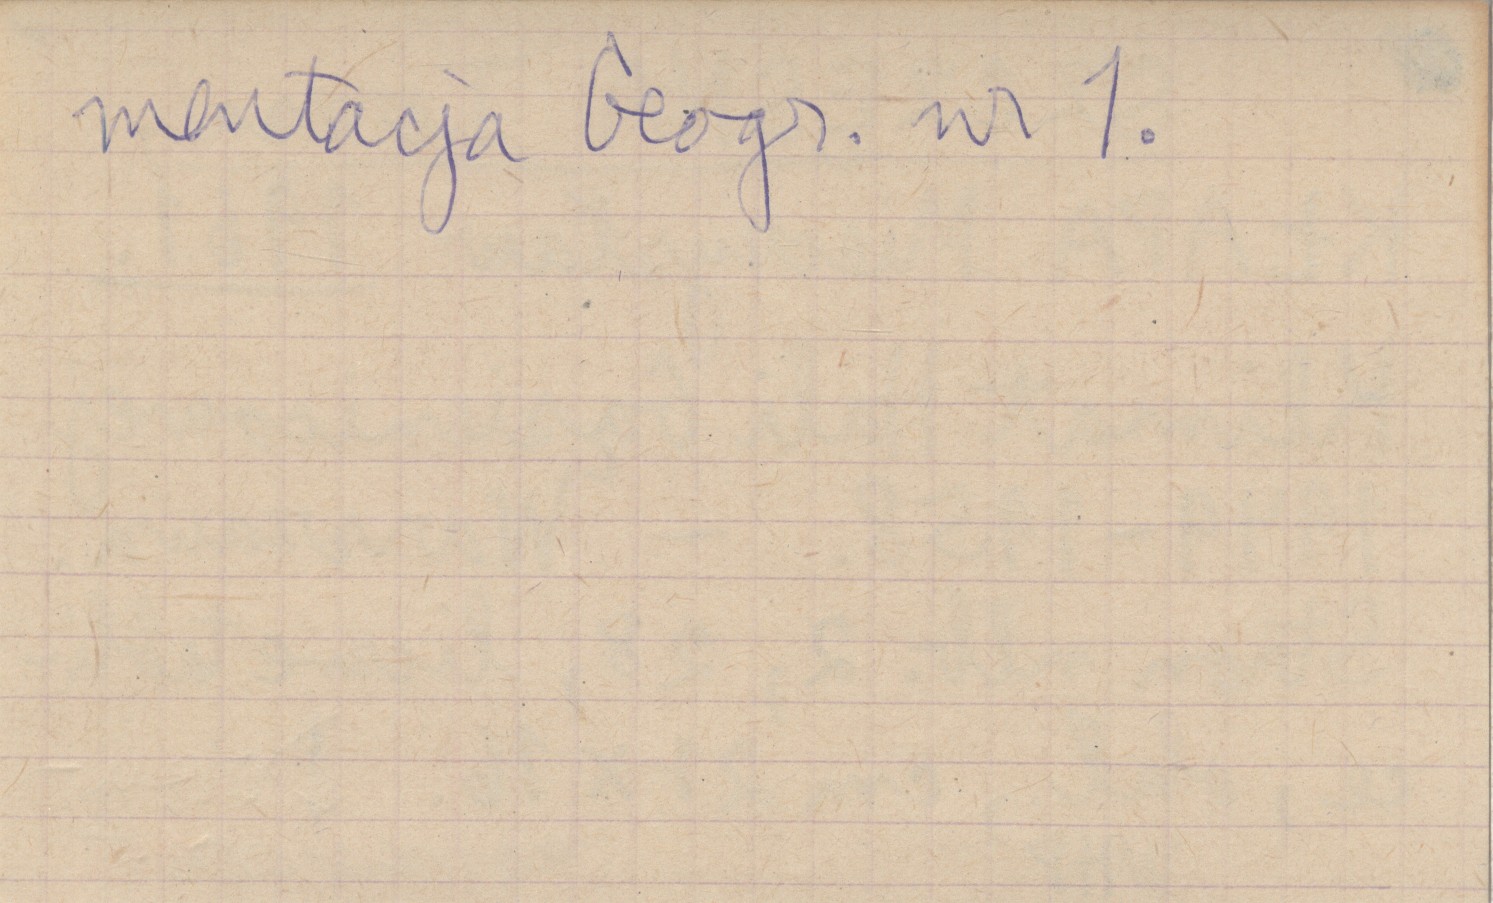 mentacja Geogr. nr 1.